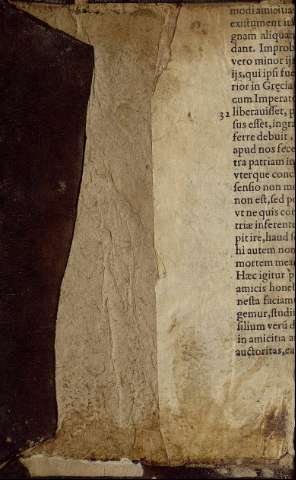 modi amicitia
existument ita
gnam aliquam
dant. Improb
vero minor ij
ijs, qui ipsi fue
rior in Gręcia
cum Imperat
32 liberauisset, p
sus esset, ingra
ferre debuit,
apud nos fece
tra patriam in
vterque conc
sensio non m
non est, sed p
vt ne quis con
triæ inferente
pit ire, haud s
hi autem non
mortem mea
Hæc igitur p
amicis hones
nesta faciam
gemur, studi
silium verũ d
in amicitia a
auctoritas, ea